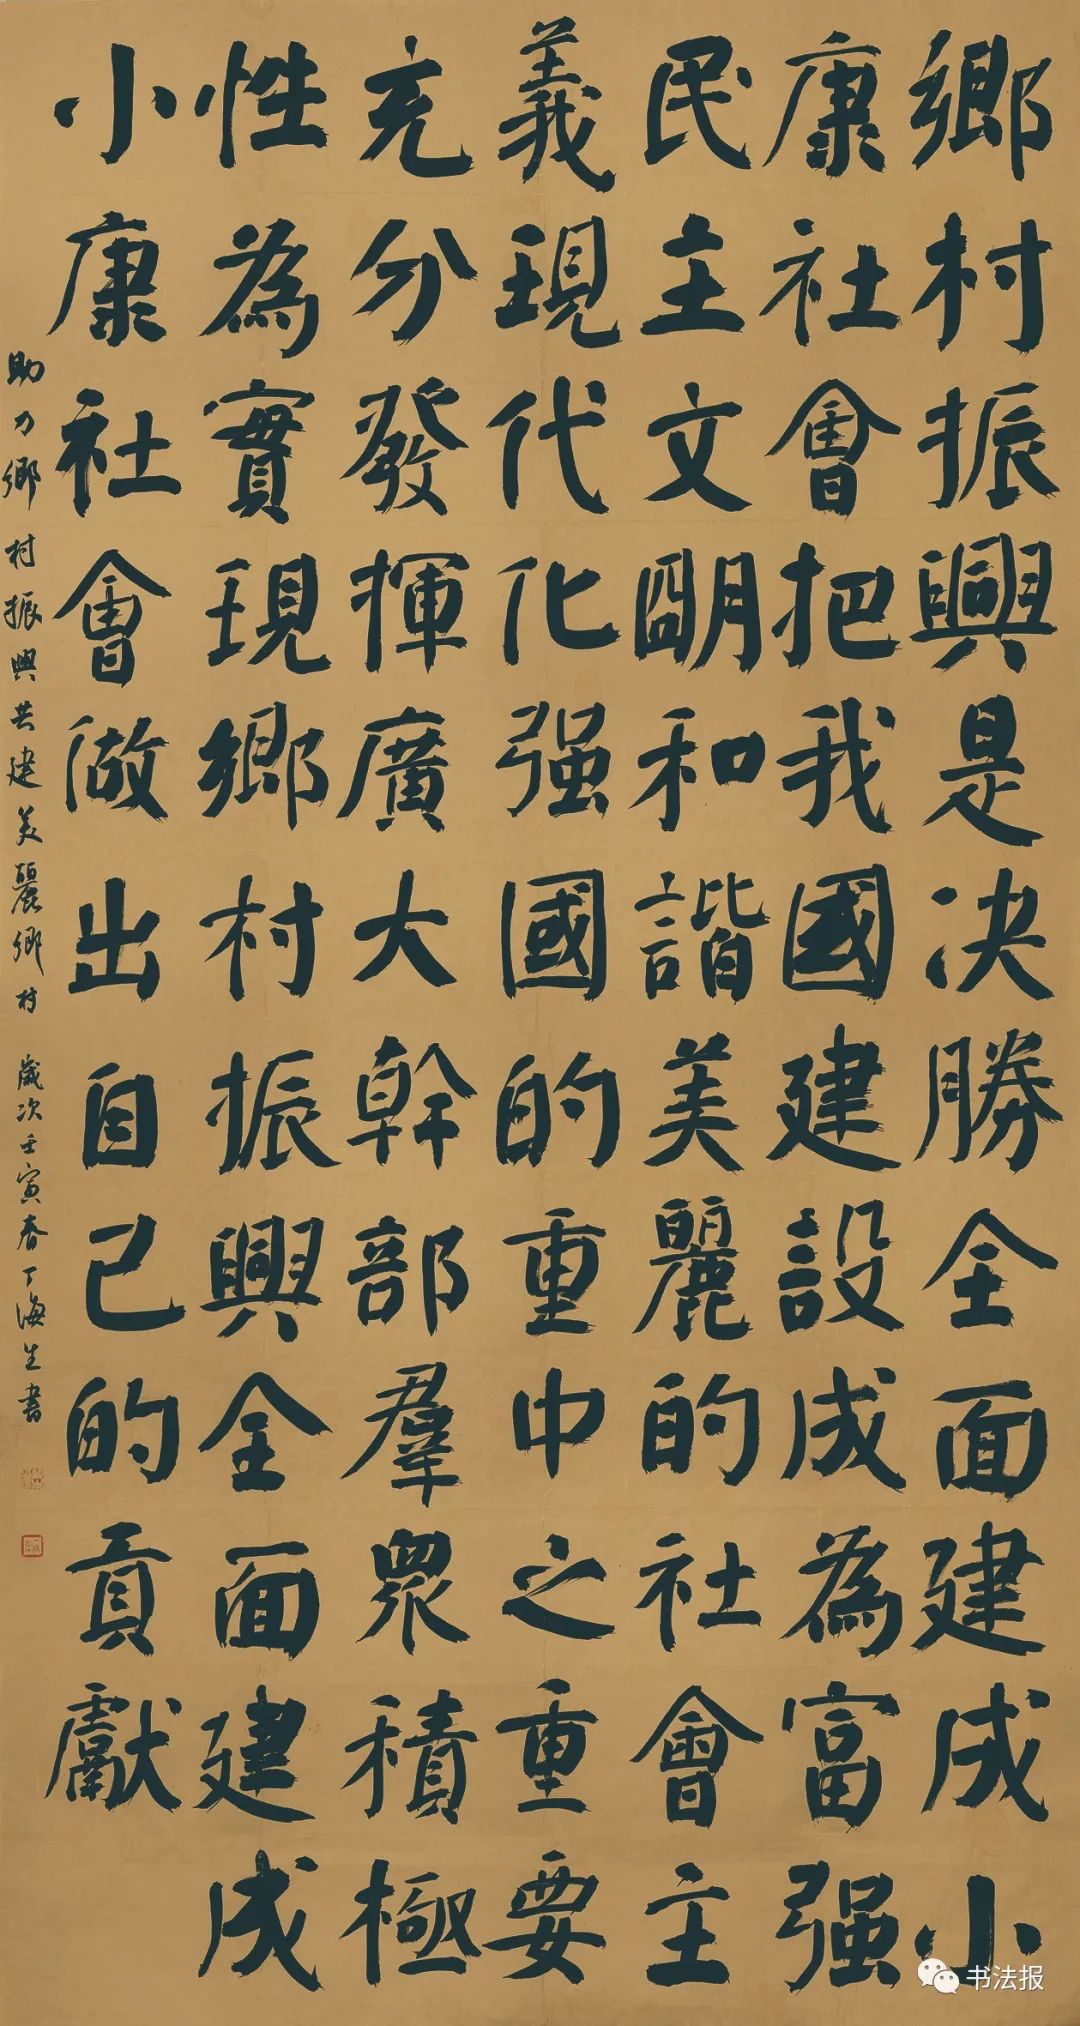 鄉村振興是决勝全面建成小
康社會把我國建設成為富强
民主文明和諧美麗的社會主
義現代化强國的重中之重要
充分發揮廣大幹部羣眾積極
性為實現鄉村振興全面建成
小康社會做出自己的貢獻
助力鄉村振興共建美麗鄉村 歲次壬寅春丁海生書
书法报